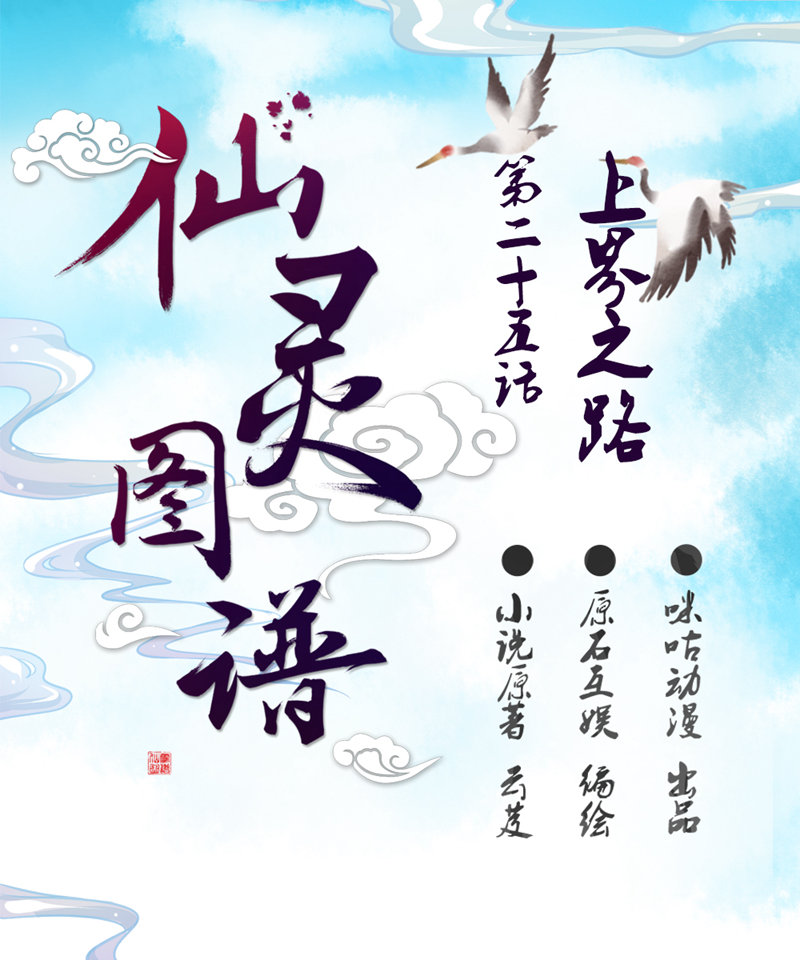 仙灵图谱
上界之路
第二十五话
咪咕动漫 出品
原石互娱 编绘
小说原著 云芨